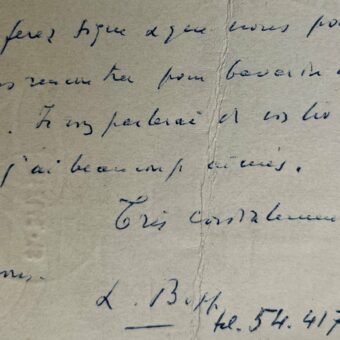 ferez signe & que nous po
rencontrer pour bavarder
. Je vous parlerai de vos liv
j'ai beaucoup aimés.
Très cordialemen
L. Bopp
tel. 54.417